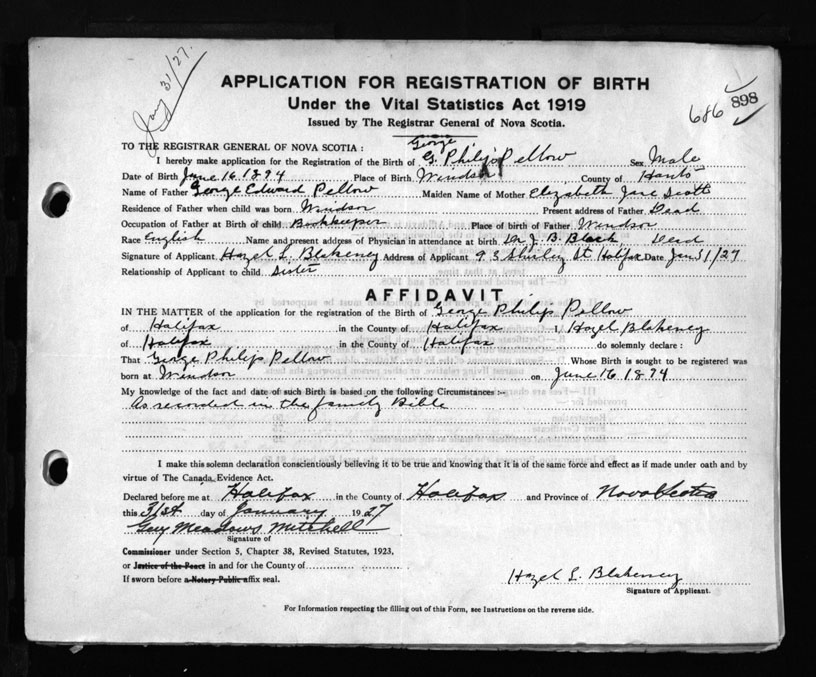 Jany 31/27.
APPLICATION FOR REGISTRATION OF BIRTH
Under the Vital Statistics Act 1919
Issued by The Registrar General of Nova Scotia.
686 898
TO THE REGISTRAR GENERAL OF NOVA SCOTIA :
George
I hereby make application for the Registration of the Birth of G. Philips Pellow Sex Male
Date of Birth June 16, 1894 Place of Birth Windsor County of Hants
Name of Father George Edward Pellow Maiden Name of Mother Elizabeth Jane Scott
Residence of Father when child was born Windsor Present address of Father Dead
Occupation of Father at Birth of child Bookkeeper Place of birth of Father Windsor
Race English Name and present address of Physician in attendance at birth Dr. J. B. Black, Dead
Signature of Applicant Hazel L. Blakeney Address of Applicant 93 Shirley St Halifax Date Jan 31/27
Relationship of Applicant to child Sister
AFFIDAVIT
IN THE MATTER of the application for the registration of the Birth of George Philips Pellow
of Halifax in the County of Halifax I, Hazel Blakeney
of Halifax in the County of Halifax do solemnly declare :
That George Philips Pellow Whose Birth is sought to be registered was
born at Windsor on June 16 1894
My knowledge of the fact and date of such Birth is based on the following Circumstances :-
As recorded in the family Bible
I make this solemn declaration conscientiously believing it to be true and knowing that it is of the same force and effect as if made under oath and by
virtue of The Canada Evidence Act.
Declared before me at Halifax in the County of Halifax and Province of Nova Scotia
this 31st day of January 1927
Guy Meadows Mitchell
Signature of
Commissioner under Section 5, Chapter 38, Revised Statutes, 1923,
or Justice of the Peace in and for the County of
If sworn before a Notary Public affix seal.
Hazel L. Blakeney
Signature of Applicant.
For Information respecting the filling out of this Form, see Instructions on the reverse side.